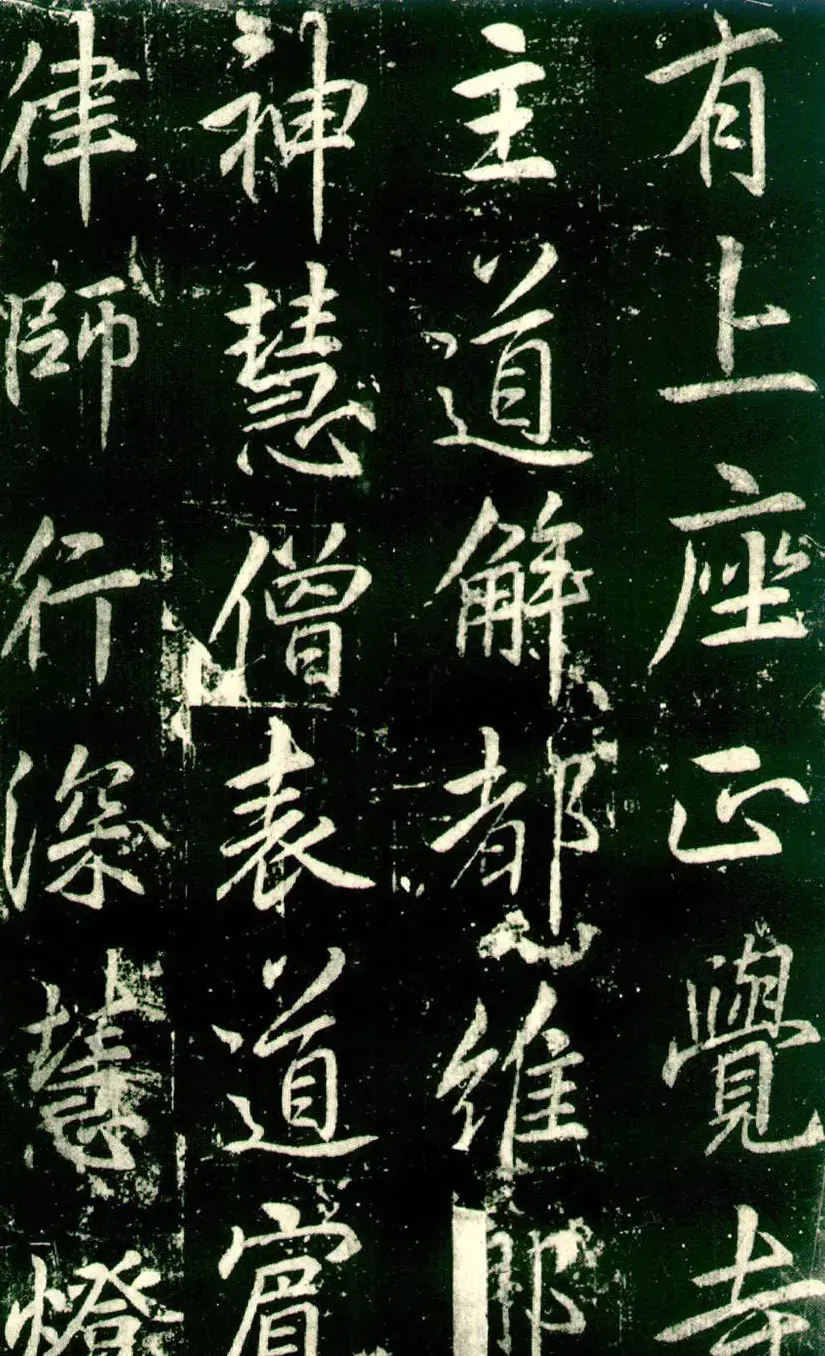 有上座正覺寺
主道解都維那
神慧僧表道賓
律師行深慧燈